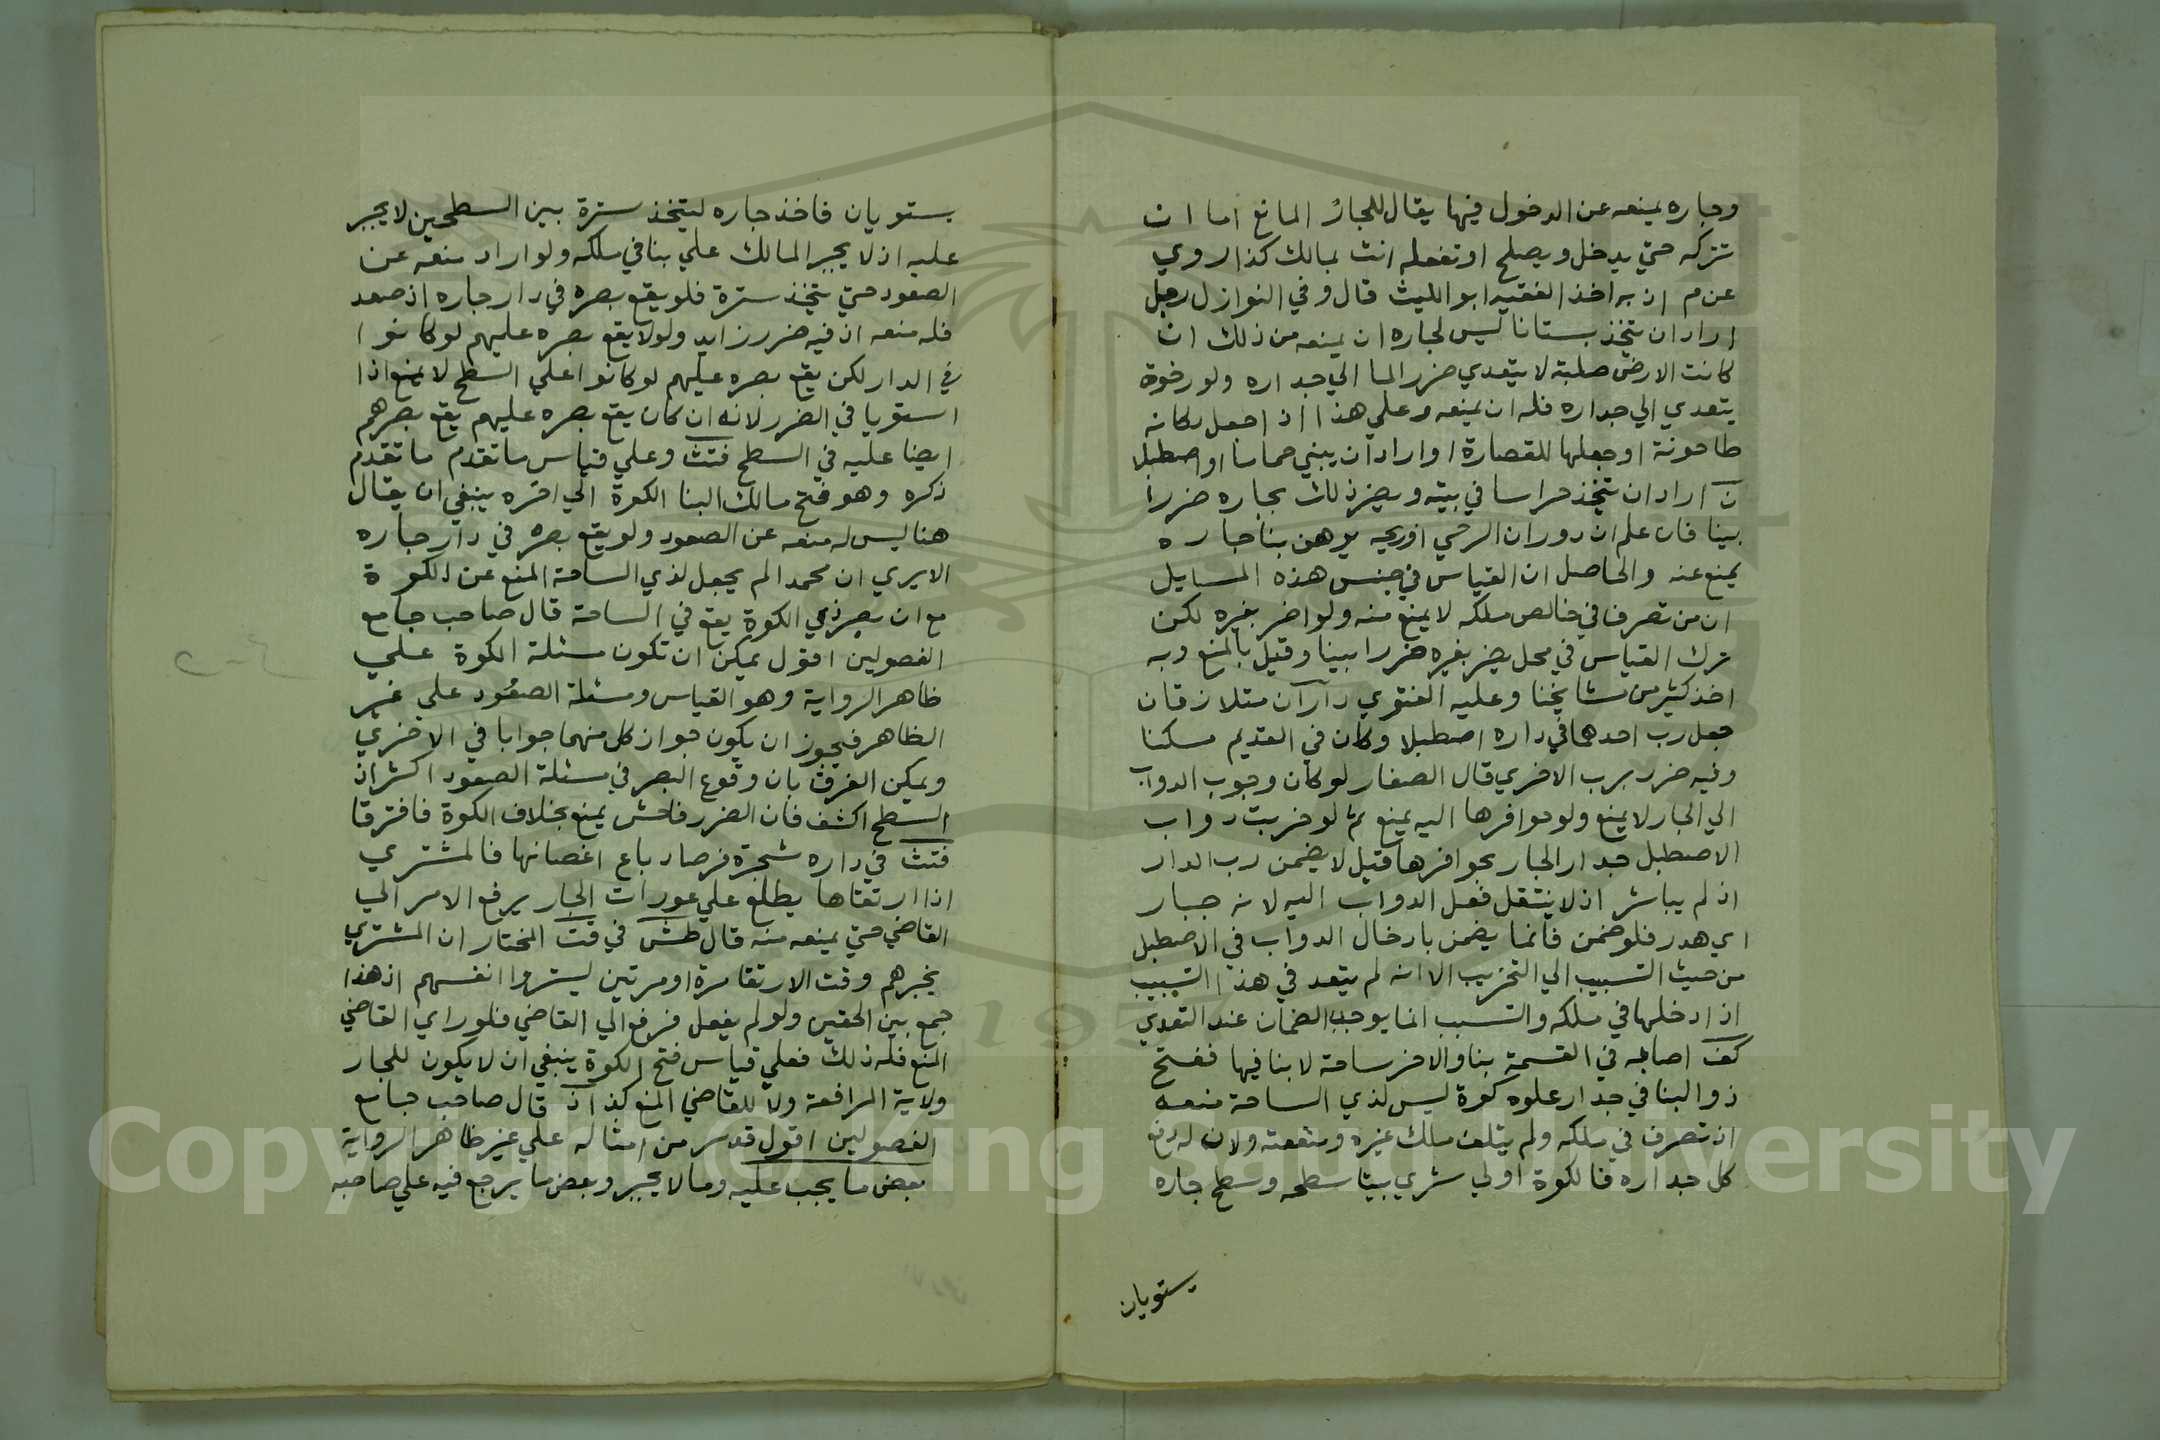 وجاره يمنعه عن الدخول فيها يقال للجار المانع اما ان
تتركه حتي يدخل ويصلح او تفعله انت بمالك كذا روي
عن م اذ به اخذ الفقيه ابو الليث قال وفي النوازل رجل
اراد ان يتخذ بستانا ليس لجاره ان يمنعه من ذلك ان
كانت الارض صلبة لا يتعدي ضرر الما الي جداره ولو رخوة
يتعدي الي جداره فله ان يمنعه وعلي هذا اذا جعل دكانه
طاحونة او جعلها للقصارة او اراد ان يبني حماما او اصطبلا
ن اراد ان يتخذ مراسا في بيته ويضر ذلك بجاره ضررا
بينا فان علم ان دوران الرحي او ريحه يوهن بنا جاره
يمنع عنه والحاصل ان القياس في جنس هذه المسايل
ان من تصرف في خالص ملكه لا يمنع منه ولو اضر بغيره لكن
ترك القياس في محل يضر بغيره ضررا بينا وقيل بالمنع وبه
اخذ كثير من مشايخنا وعليه الفتوي داران متلازقان
جعل رب احدهما في داره اصطبلا وكان في القديم مسكنا
وفيه ضرر برب الاخري قال الصفار لو كان وجوب الدواب
الي الجار لا يمنع ولو حوافرها اليه يمنع ثم لو خربت دواب
الاصطبل جدار الجار بحوافرها قيل لا يضمن رب الدار
اذ لم يباشر اذ لا ينتقل فعل الدواب اليه لانه جبار
اي هدر فلو ضمن فانما يضمن بادخال الدواب في الاصطبل
من حيث التسبيب الي التخريب الا انه لم يتعد في هذا التسبيب
اذ ادخلها في ملكه والتسبب انما يوجب الضمان عند التعدي
كف اصابه في القسمة بنا والاخر ساحة لا بنا فيها ففتح
ذو البنا في جدار علوه كوة ليس لذي الساحة منعه
اذ تصرف في ملكه ولم يتلف ملك غيره ومنفعته ولان له رفع
كل جداره فالكوة اولي شري بيتا سطحه وسطح جاره
يستويان
يستويان فاخذ جاره ليتخذ سترة بين السطحين لا يجبر
عليه اذ لا يجبر المالك علي بنا في ملكه ولو اراد منعه عن
الصعود حتي يتخذ سترة فلو يقع بصره في دار جاره اذ صعد
فله منعه اذ فيه ضرر زايد ولو لا يقع بصره عليهم لو كانوا
في الدار لكن يقع بصره عليهم لو كانوا علي السطح لا يمنع اذا
استويا في الضرر لانه ان كان يقع بصره عليهم يقع بصرهم
ايضا عليه في السطح فتث وعلي قياس ما تقدم ما تقدم
ذكره وهو فتح مالك البنا الكوة الي اخره ينبغي ان يقال
هنا ليس له منعه عن الصعود ولو يقع بصره في دار جاره
الا يري ان محمدا لم يجعل لذي الساحة المنع عن الكوة
مع ان بصر ذي الكوة يقع في الساحة قال صاحب جامع
الفصولين اقول يمكن ان تكون مسئلة الكوة علي
ظاهر الرواية وهو القياس ومسئلة الصعود علي غير
الظاهر فيجوز ان يكون جواز كل منهما جوابا في الاخري
ويمكن الفرق بان وقوع البصر في مسئلة الصعود اكثر اذ
السطح اكشف فان الضرر فاحش يمنع بخلاف الكوة فافترقا
فتث في داره شجرة فرصاد باع اغصانها فالمشتري
اذا ارتقاها يطلع علي عورات الجار يرفع الامر الي
القاضي حتي يمنعه منه قال طش في فت المختار ان المشتري
يخبرهم وقت الارتقا مرة او مرتين ليستروا انفسهم اذ هذا
جمع بين الحقين ولو لم يفعل فرفع الي القاضي فلو راي القاضي
المنع فله ذلك فعلي قياس فتح الكوة ينبغي ان لا يكون للجار
ولاية المرافعة ولا للقاضي المنع كذا ان قال صاحب جامع
الفصولين اقول قد مر من امثاله علي غير ظاهر الرواية
بعض ما يجب عليه وما لا يجبر وبعض ما يرجع فيه علي صاحبه
Copyright © King Saud University
195